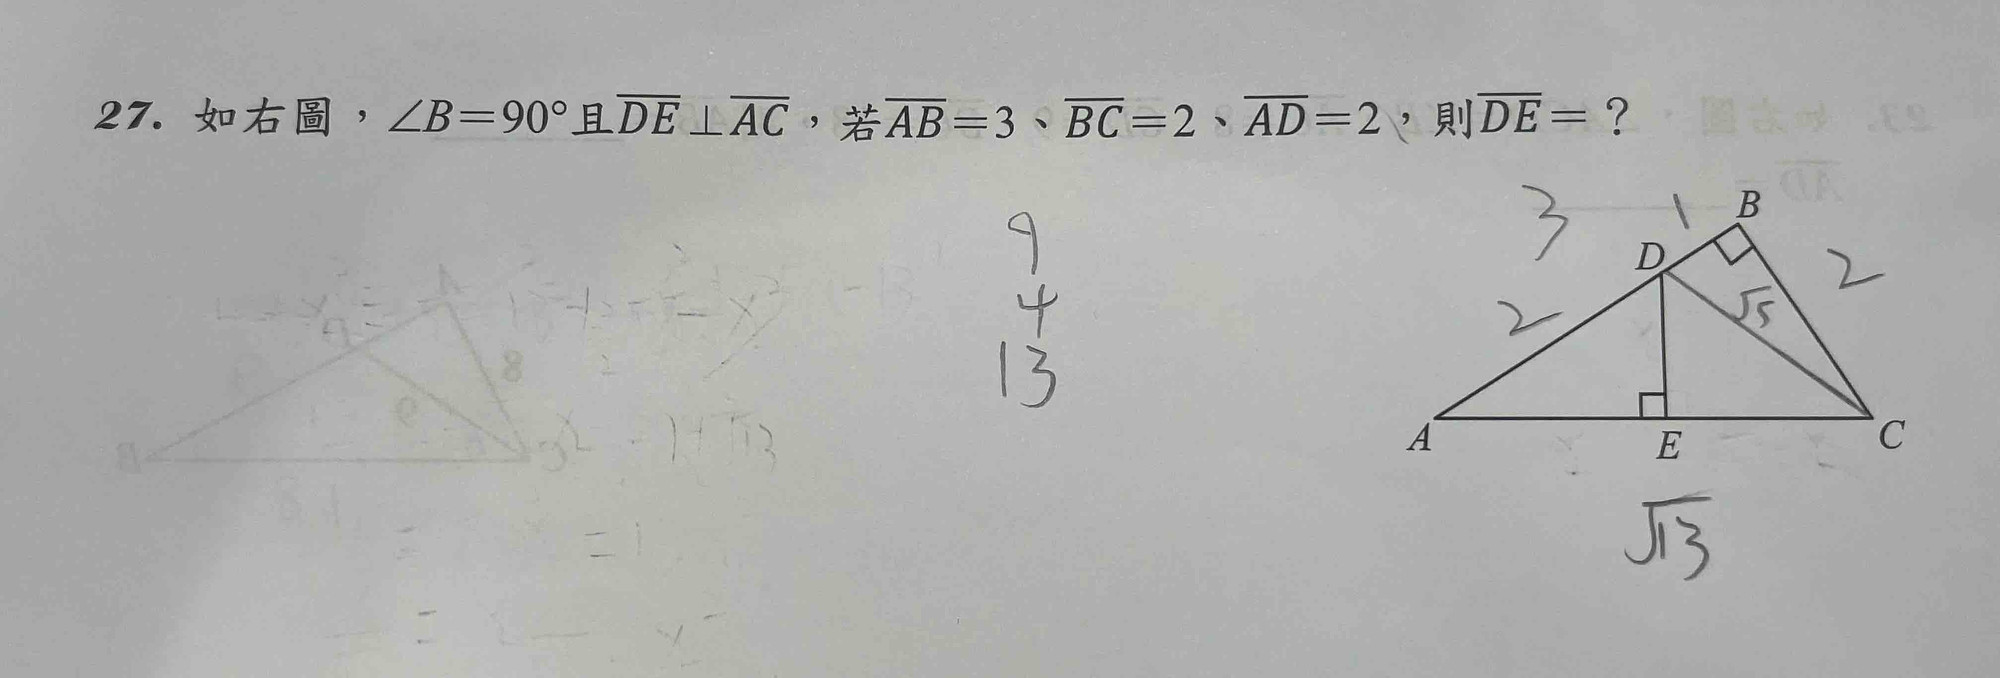 27. 如右圖，∠B=90°且DE⊥AC，若AB=3、BC=2、AD=2，則DE=？
9
4
13
3
1
B
D
2
2
√5
A
E
C
√13